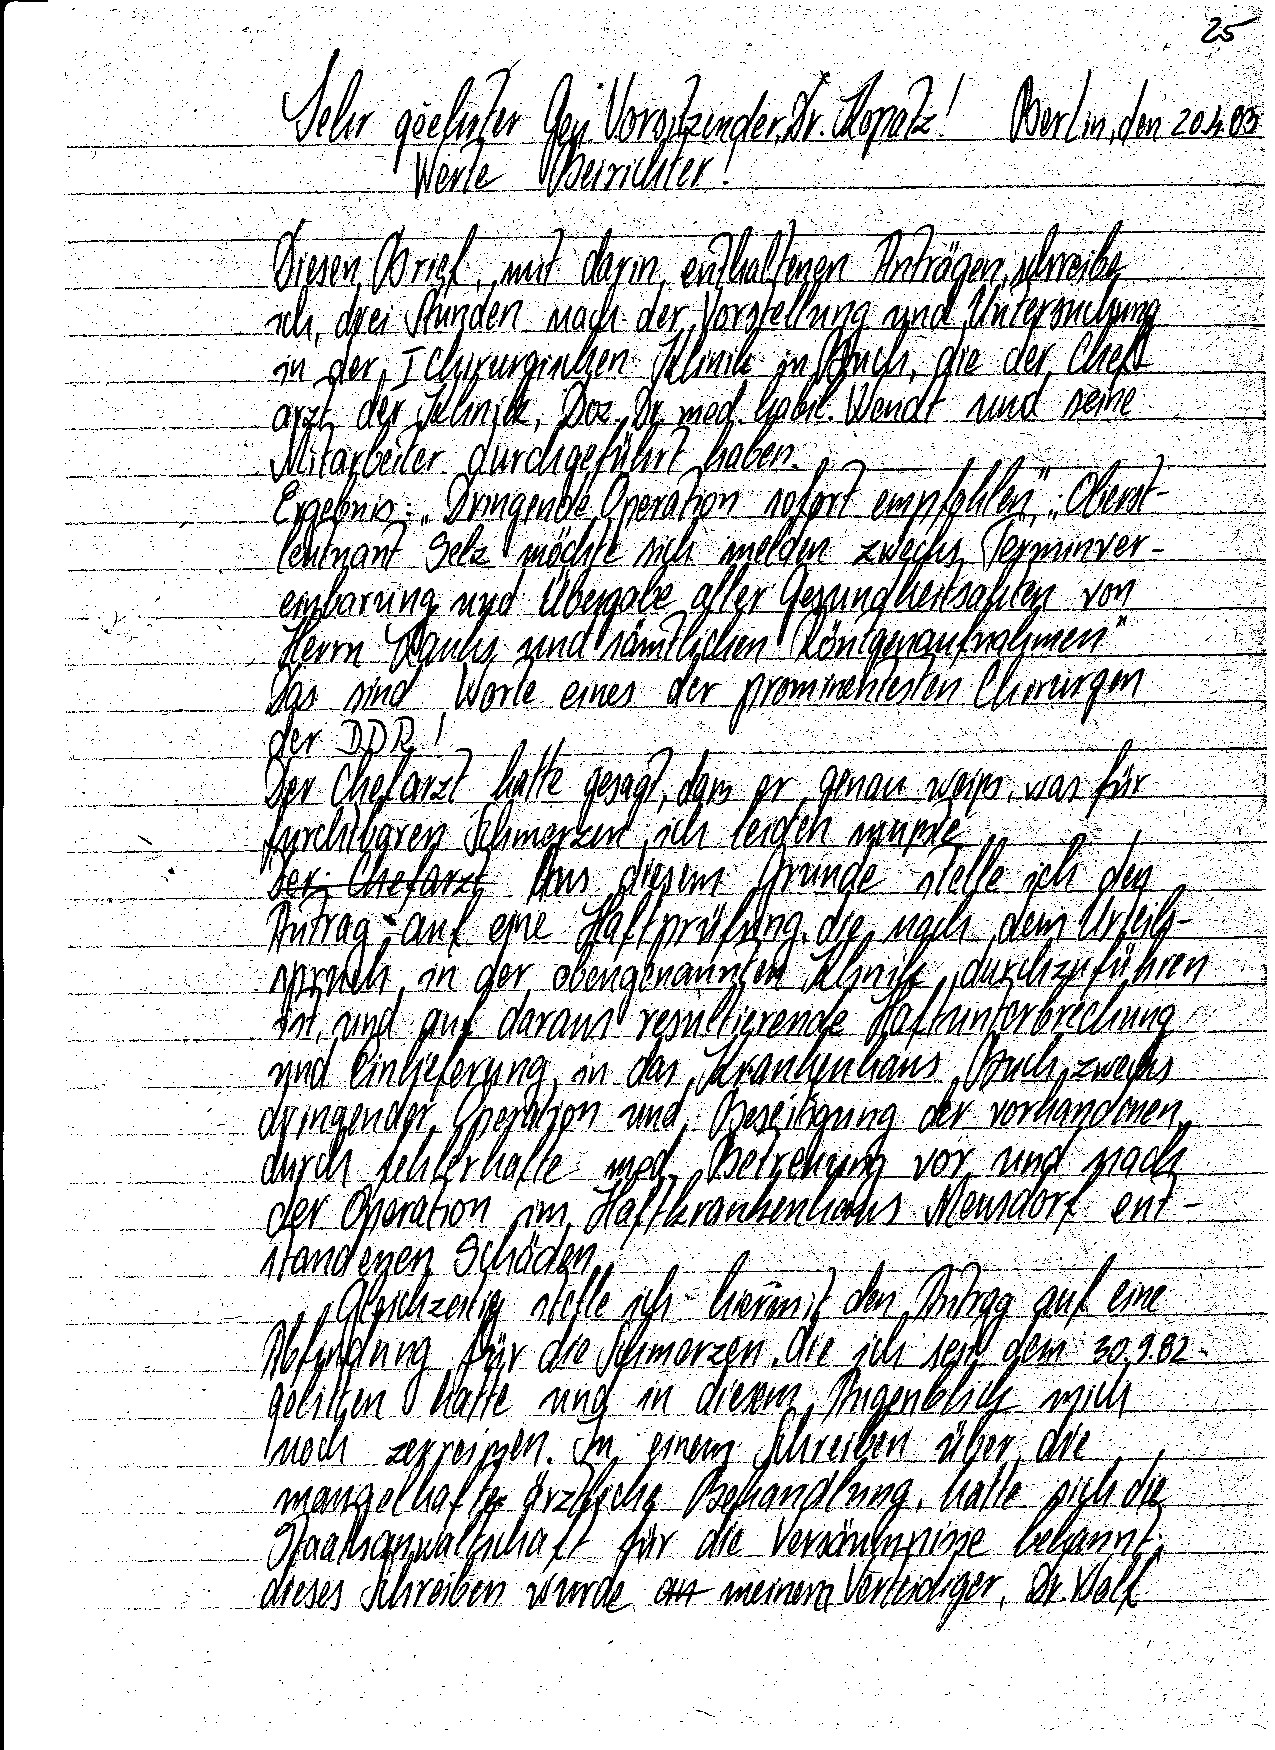 25
Sehr geehrter Gen. Vorsitzender, Dr. Kopatz! Berlin, den
Werte Beirichter!
Diesen Brief, mit darin enthaltenen Anträgen, schreibe
ich, drei Stunden nach der Vorstellung und Untersuchung
in der I Chirurgischen Klinik in Buch, die der Chef
arzt der Klinik, Doz. Dr. med. habil. Wendt und seine
Mitarbeiter durchgeführt haben.
Ergebnis: „Dringende Operation sofort empfohlen", „Oberst-
leutnant Selz möchte sich melden zwecks Terminver-
einbarung und Übergabe aller Gesundheitsakten von
Herrn und sämtlichen Röntgenaufnahmen"
Das sind Worte eines der prominentesten Chirurgen
der DDR!
Der Chefarzt hatte gesagt, dass er genau weiss, was für
furchtbaren Schmerzen ich leiden musste
Der Chefarzt Aus diesem Grunde stelle ich den
Antrag - auf eine Haftprüfung, die nach dem Urteils-
spruch in der obengenannten Klinik durchzuführen
ist, und auf daraus resultierende Haftunterbrechung
und Einlieferung in das Krankenhaus Buch, zwecks
dringender Operation und Beseitigung der vorhandenen,
durch fehlerhafte med. Betreuung vor und nach
der Operation im Haftkrankenhaus Meusdorf ent-
standenen Schäden.
Gleichzeitig stelle ich hiermit den Antrag auf eine
Abfindung für die Schmerzen, die ich seit dem 30.9.82
gelitten hatte und in diesem Augenblick mich
noch zerreissen. In einem Schreiben über die
mangelhafte ärztliche Behandlung, hatte sich die
Staatsanwaltschaft für die Versäumnisse bekannt,
dieses Schreiben wurde an meinem Verteidiger, Dr. Wolf